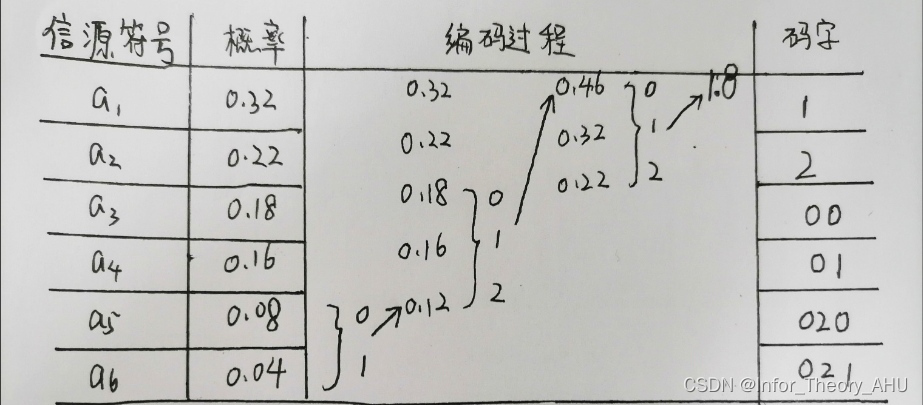 信源符号 概率 编码过程 码字
a1 0.32 0.32 0.46 0 1.0 1
a2 0.22 0.22 0.32 1 2
a3 0.18 0.18 0 0.22 2 00
a4 0.16 0.16 1 01
a5 0.08 0 0.12 2 020
a6 0.04 1 021
CSDN @Infor_Theory_AHU